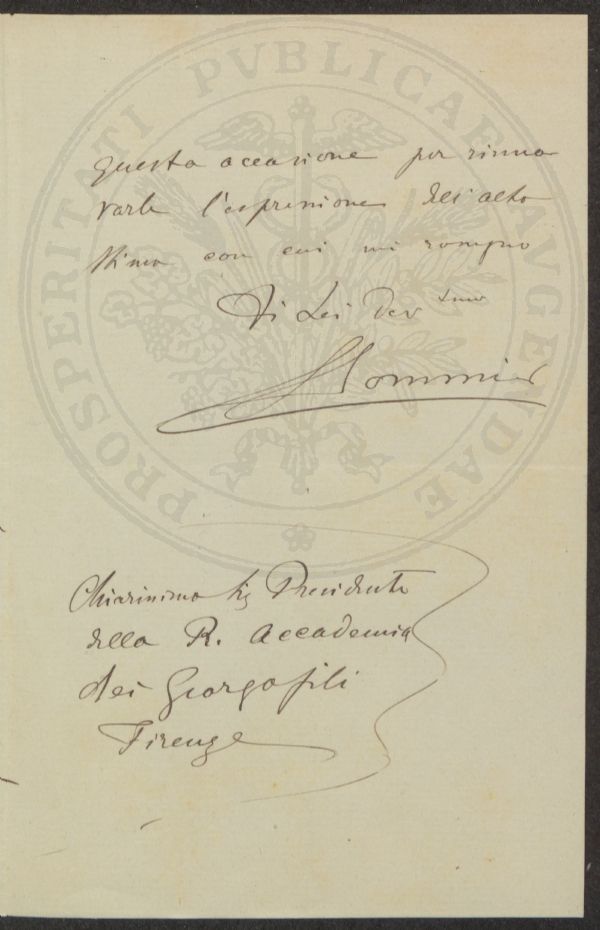 PROSPERITATI PVBLICAE AVGENDAE
questa occasione per rinno
varle l'espressione dell'alta
stima con cui mi segno
Di Lei Dev.smo
SSommier
Chiarissimo Sig Presidente
della R. Accademia
dei Georgofili
Firenze